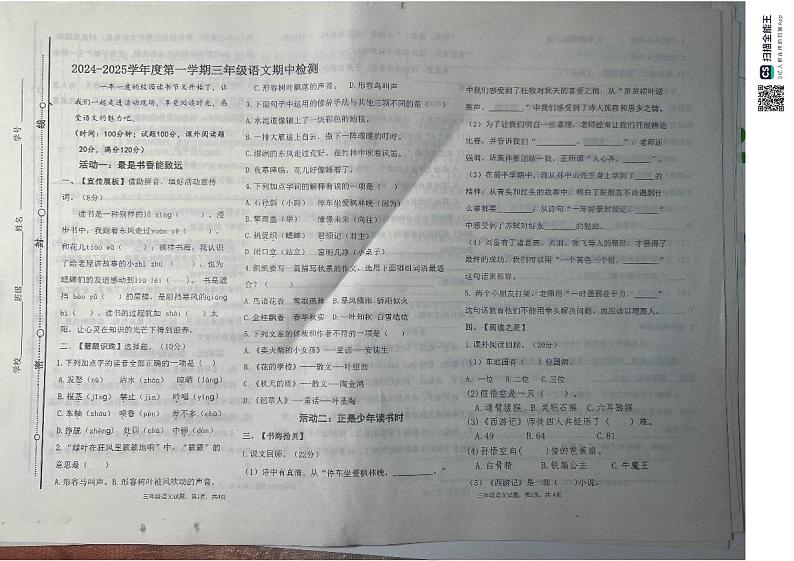 2024-2025学年度第一学期三年级语文期中检测
一年一度的校园读书节又开始了，让
我们一起走进活动现场，享受阅读时光，感
受语文的魅力吧。
(时间：100分钟；试题100分，课外阅读题
20分，满分120分)
活动一：最是书香能致远
一、【宣传展板】借助拼音，填好活动宣传
词。(8分)
读书是一种别样的lǚ xíng（ ），漫
步书中，我跟着东风走过yuán yě（ ），
和花儿tiào wǔ（ ）；徜徉书海，我认识
了给老屋讲故事的小zhī zhū（ ），也为
蟋蟀们的友谊感动到liú lèi（ ）。书是遮
挡 bào yǔ（ ）的屋檐，是阻挡寒风的qiáng
bì（ ）。读书的过程犹如 shài（ ）太
阳，让心灵在知识的光芒下得到滋养。
二、【慧眼识珠】选择题。(10分)
1.下列加点字的读音全部正确的一项是（ ）
2. “绿叶在狂风里簌簌地响”中，“簌簌”的
意思是（ ）
A.形容马叫声。B.形容树叶被风吹动的声音。
三年级语文试题，第1页，共4页
C.形容树叶飘落的声音。 D.形容鸟叫声
3.下面句子中运用的修辞手法与其他三项不同的是（ ）
A.水泥道像铺上了一块彩色的地毯。
B.一排大雁追上白云，撒下一阵暖暖的叮咛。
C.湿润的东风走过荒野，在竹林中吹着风笛。
D.夜幕降临，花儿好像睡着了。
4.下列加点字词的解释有误的一项是（ ）
A.石径斜（小路） 停车坐爱枫林晚（因为）
B.擎雨盖（举） 憧憬未来（向往）
C.挑促织（蟋蟀） 君须记（君主）
D.闭口立（站立） 窗明几净（小桌子）
4.凯凯要写一篇描写秋景的作文，选用下面哪组词语最适
合？（ ）
A.鸟语花香 莺歌燕舞 B.暴风骤雨 骄阳似火
C.金桂飘香 春华秋实 D.一叶知秋 白雪皑皑
5.下列文章的体裁和作者不符的一项是（ ）
A.《卖火柴的小女孩》——童话——安徒生
B.《花的学校》——散文——叶绍翁
C.《秋天的雨》——散文——陶金鸿
D.《稻草人》——童话——叶圣陶
活动二：正是少年读书时
三、【书海拾贝】
1.课文回顾。（22分）
（1）诗中有真情。从“停车坐爱枫林晚，________。”
中我们感受到了杜牧对秋天的喜爱之情；从“萧萧梧叶送
寒声，________”中我们感受到了诗人孤寂和思乡之情。
（2）为了让我们明白一些道理，老师经常让我们开展辩论
比赛，并告诉我们“________，________”；老师还
强调，班集体要团结一致，正所谓“人心齐，________”。
（3）在前半学期中，我从孙中山先生身上学到了____的
精神；从青头和红头的故事中，明白了好朋友不论遇到什
么事都要________；从诗句“一年好景君须记，________”
中感受到了苏轼对好友________的勉励。
（4）刘备有了诸葛亮、关羽、张飞等人的帮助，才获得了
最终的成功。我们可以用“一个篱笆三个桩，________”
这句话来形容。
5.两个小朋友打架，老师用“一时强弱在于力，________”
这句话教育他们不能用拳头解决问题，而应该以理服人。
四、【阅读之星】
1.课外阅读回顾。（20分）
（1）车迟国有（ ）位国师。
A.一位 B.二位 C.三位
(2)假悟空是一只（ ）。
A.通臂猿猴 B.灵明石猴 C.六耳猕猴
(3)《西游记》师徒四人共经历了（ ）难。
A.49 B.64 C.81
(4)孙悟空向（ ）借的芭蕉扇。
A.白骨精 B.铁扇公主 C.牛魔王
（5）《西游记》是一部（ ）小说。
三年级语文试题，第2页，共4页
学校
班级
姓名
学号
扫描全能王